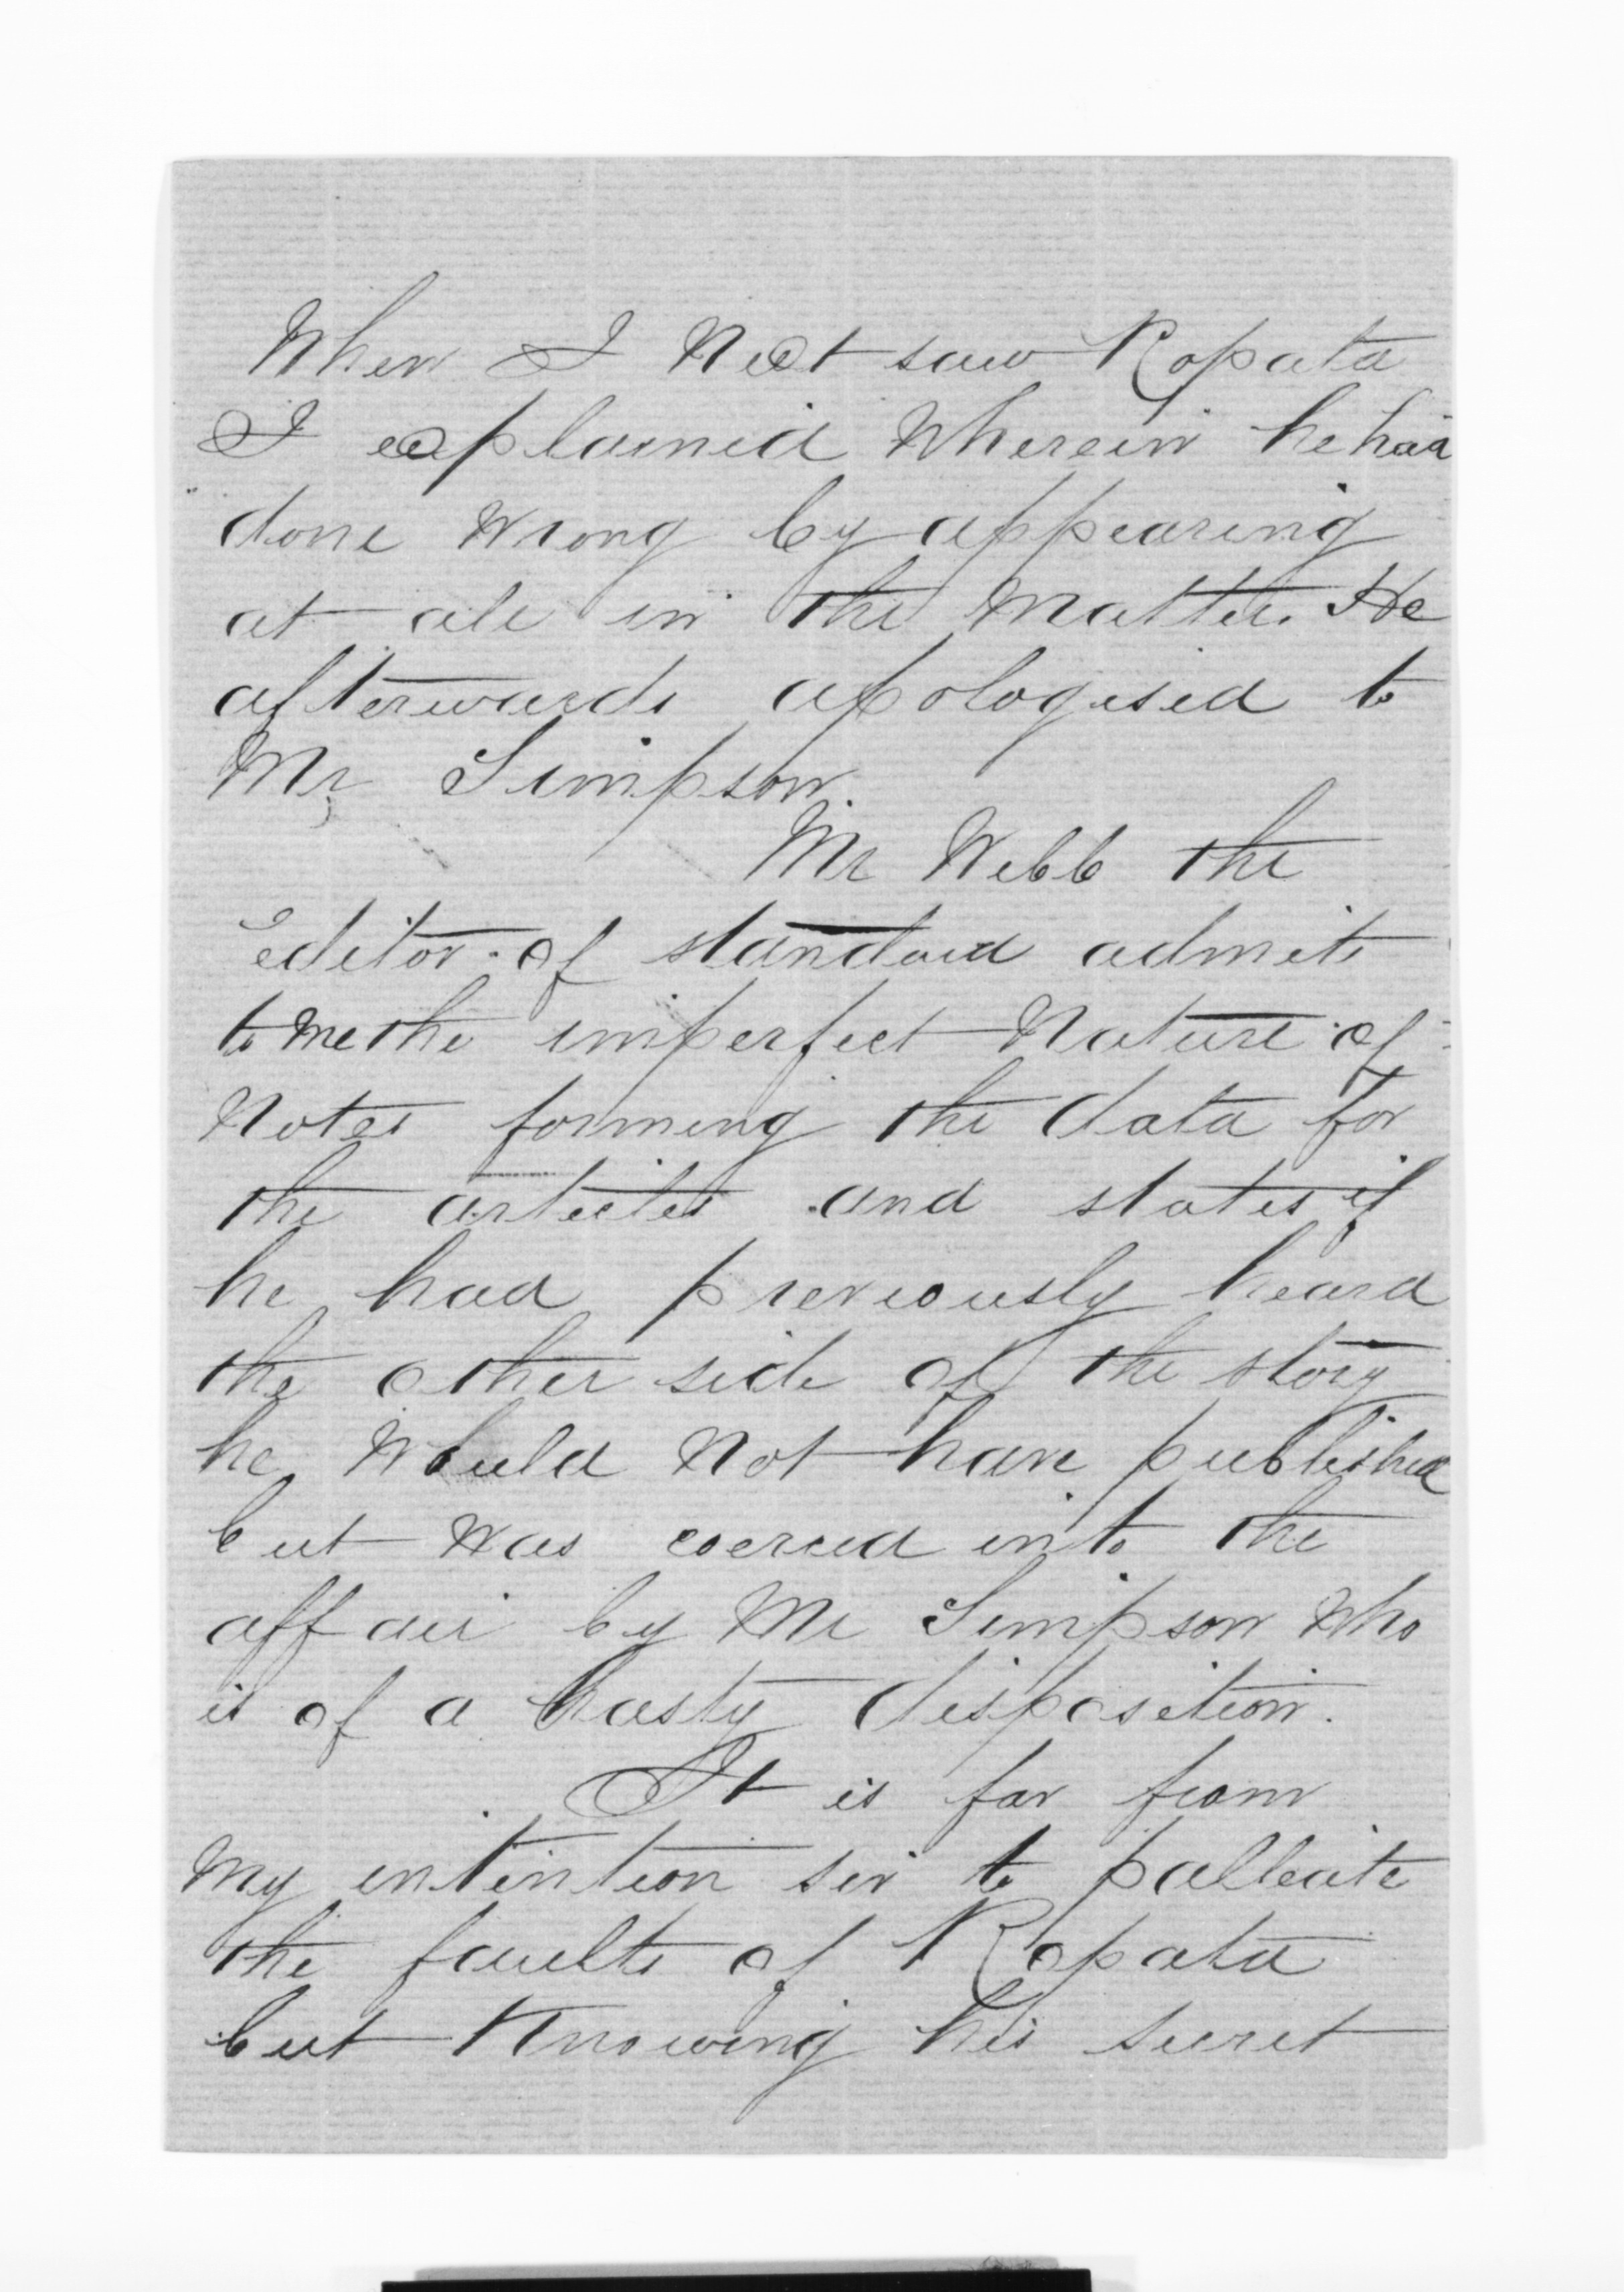 When I Next saw Ropata
I explained Wherein he had
done Wrong by appearing
at all in the Matter. He
afterwards apologised to
Mr Simpson.
Mr Webb the
editor of standard admits
to Me the imperfect Nature of
Notes forming the data for
the articles and states if
he had previously heard
the other side of the story
he Would Not have published
but Was coerced into the
affair by Mr Simpson Who
is of a hasty disposition.
It is far from
My intention sir to palleate
the faults of Ropata
but Knowing his secret